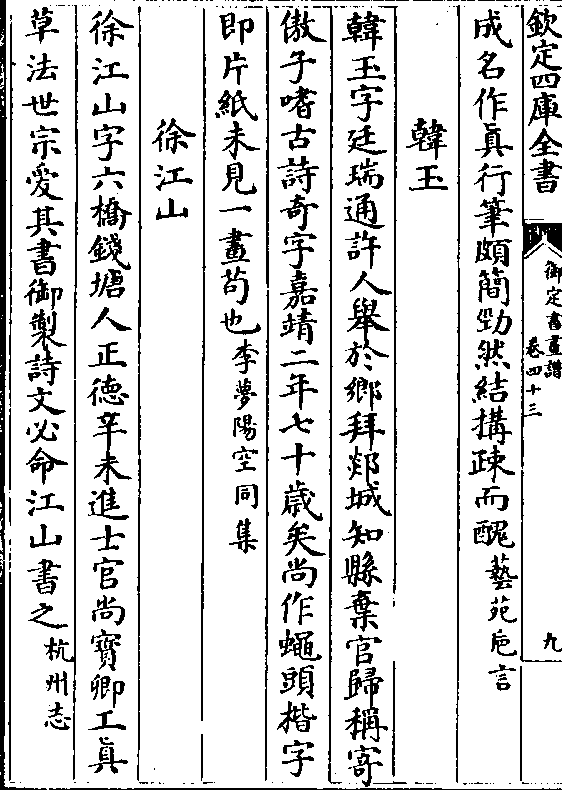 欽定四庫全書
御定書畫譜
卷四十三
九
成名作真行筆頗簡勁然結搆疎而醜藝苑巵言
韓玉
韓玉字廷瑞通許人舉於鄉拜郯城知縣棄官歸稱寄
傲子嗜古詩奇字嘉靖二年七十歳矣尚作蠅頭楷字
即片紙未見一畫苟也李夢陽空同集
徐江山
徐江山字六橋錢塘人正德辛未進士官尚寳卿工眞
草法世宗愛其書御製詩文必命江山書之杭州志